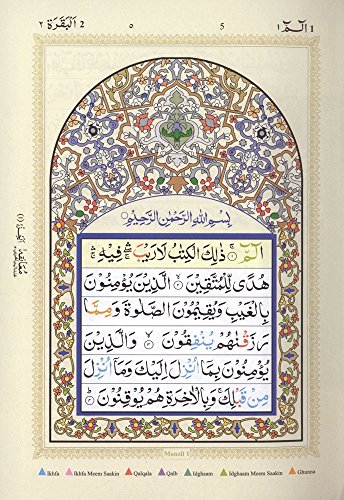 ٢ اَلْبَقَرَة 2
٥
5
١ الٓمّٓ 1
بِسْمِ اللهِ الرَّحْمٰنِ الرَّحِيْمِ
الٓمّٓ ۚ ذٰلِكَ الْكِتٰبُ لَا رَيْبَ ۛ فِيْهِ ۛ
هُدًى لِّلْمُتَّقِيْنَ الَّذِيْنَ يُؤْمِنُوْنَ
بِالْغَيْبِ وَيُقِيْمُوْنَ الصَّلٰوةَ وَمِمَّا
رَزَقْنٰهُمْ يُنْفِقُوْنَ وَالَّذِيْنَ
يُؤْمِنُوْنَ بِمَآ اُنْزِلَ اِلَيْكَ وَمَآ اُنْزِلَ
مِنْ قَبْلِكَ ۚ وَبِالْاٰخِرَةِ هُمْ يُوْقِنُوْنَ
Manzil 1
Ikhfa
Ikhfa Meem Saakin
Qalqala
Qalb
Idghaam
Idghaam Meem Saakin
Ghunna